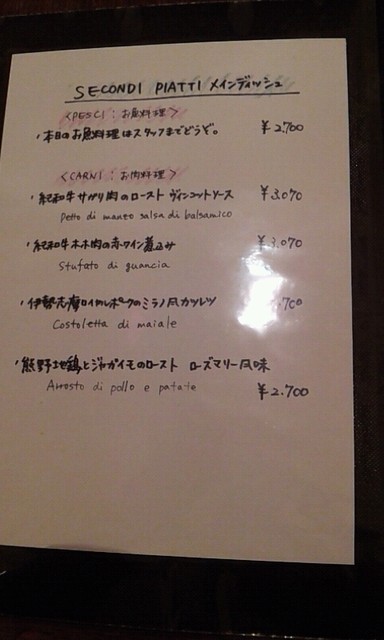 SECONDI PIATTI メインディッシュ
<PESCI：お魚料理>
・本日のお魚料理はスタッフまでどうぞ。 ¥2,700
<CARNI：お肉料理>
・紀和牛サガリ肉のロースト ヴィンコットソース ¥3,070
Petto di manzo salsa di balsamico
・紀和牛ホホ肉の赤ワイン煮込み ¥3,070
Stufato di guancia
・伊勢志摩ロイヤルポークのミラノ風カツレツ 700
Costoletta di maiale
・熊野地鶏とジャガイモのロースト ローズマリー風味
Arrosto di pollo e patate ¥2,700